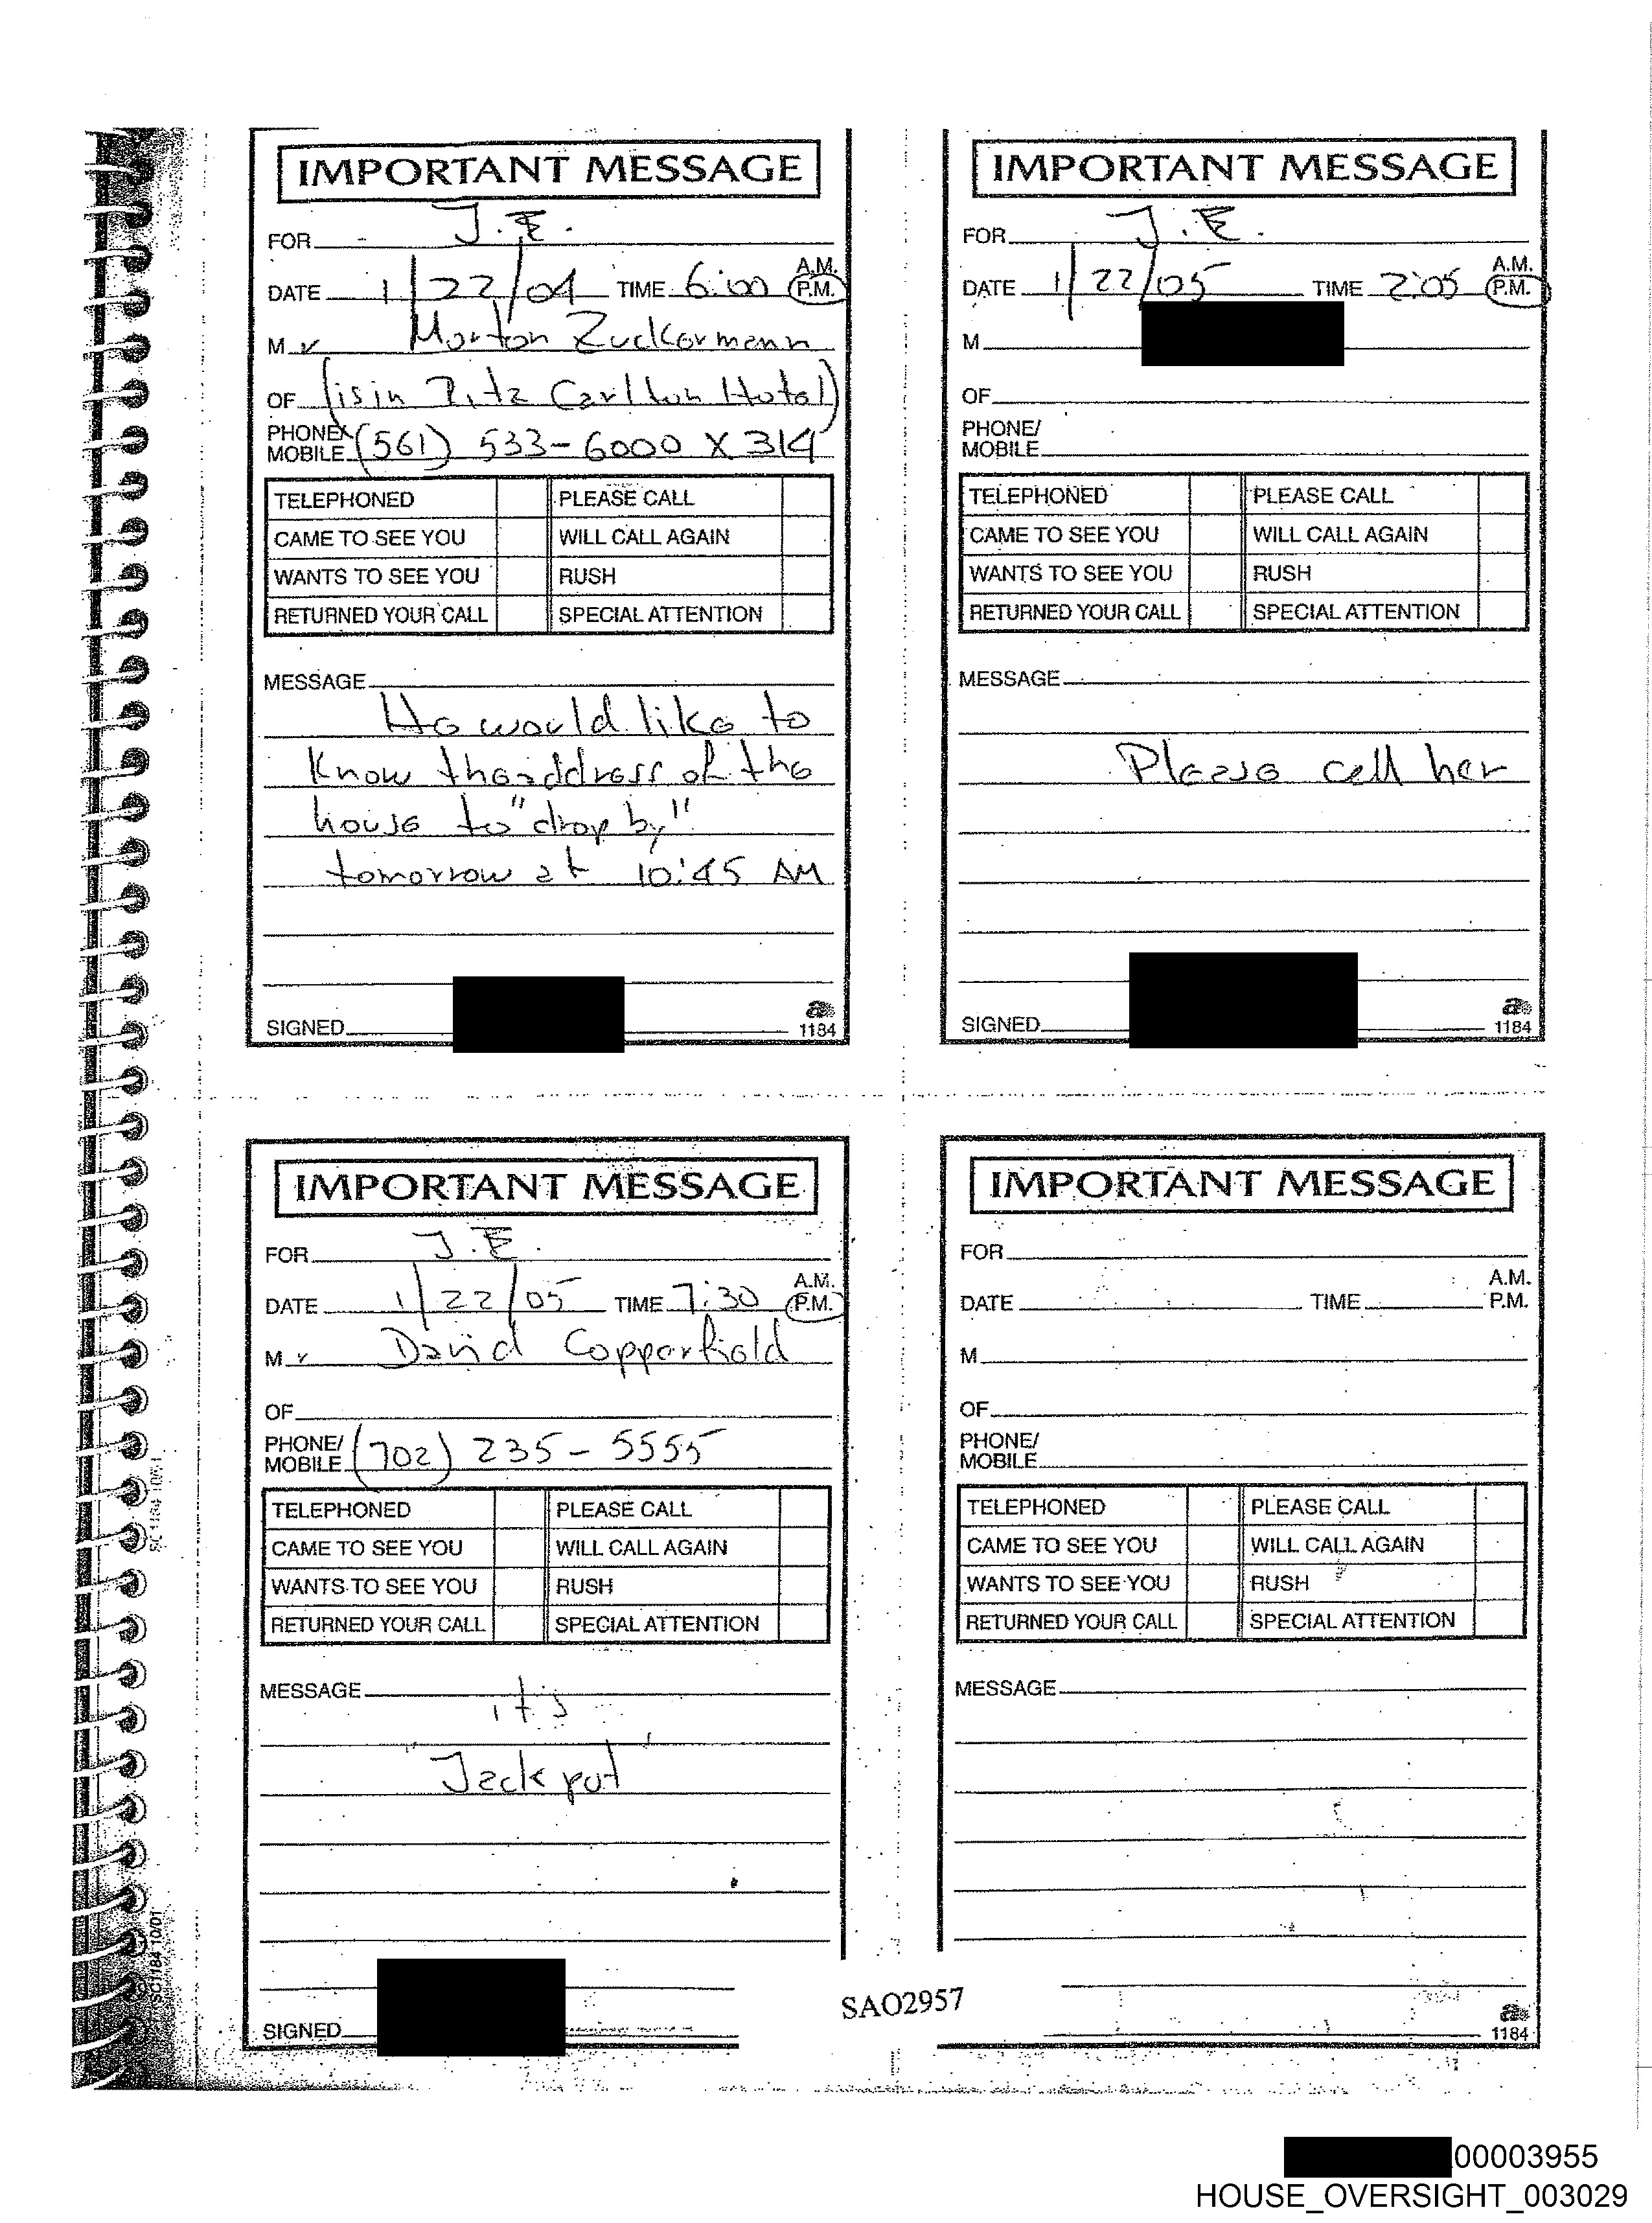 IMPORTANT MESSAGE
FOR J.E.
DATE 1/22/04 TIME 6:00 A.M. P.M.
Mr Morton Zuckermann
OF (is in Ritz Carlton Hotel)
PHONE/ MOBILE (561) 533-6000 X 314
TELEPHONED PLEASE CALL
CAME TO SEE YOU WILL CALL AGAIN
WANTS TO SEE YOU RUSH
RETURNED YOUR CALL SPECIAL ATTENTION
MESSAGE
He would like to
know the address of the
house to "drop by"
tomorrow at 10:45 AM
SIGNED
1184
IMPORTANT MESSAGE
FOR J.E.
DATE 1/22/05 TIME 2:05 A.M. P.M.
M
OF
PHONE/
MOBILE
TELEPHONED PLEASE CALL
CAME TO SEE YOU WILL CALL AGAIN
WANTS TO SEE YOU RUSH
RETURNED YOUR CALL SPECIAL ATTENTION
MESSAGE
Please call her
SIGNED
1184
IMPORTANT MESSAGE
FOR J.E.
DATE 1/22/05 TIME 7:30 A.M. P.M.
Mr David Copperfield
OF
PHONE/ MOBILE (702) 235-5555
TELEPHONED PLEASE CALL
CAME TO SEE YOU WILL CALL AGAIN
WANTS TO SEE YOU RUSH
RETURNED YOUR CALL SPECIAL ATTENTION
MESSAGE it's
"Jackpot"
SIGNED
IMPORTANT MESSAGE
FOR
DATE TIME A.M. P.M.
M
OF
PHONE/
MOBILE
TELEPHONED PLEASE CALL
CAME TO SEE YOU WILL CALL AGAIN
WANTS TO SEE YOU RUSH
RETURNED YOUR CALL SPECIAL ATTENTION
MESSAGE
1184
SC1184 10/01
SAO2957
00003955
HOUSE_OVERSIGHT_003029